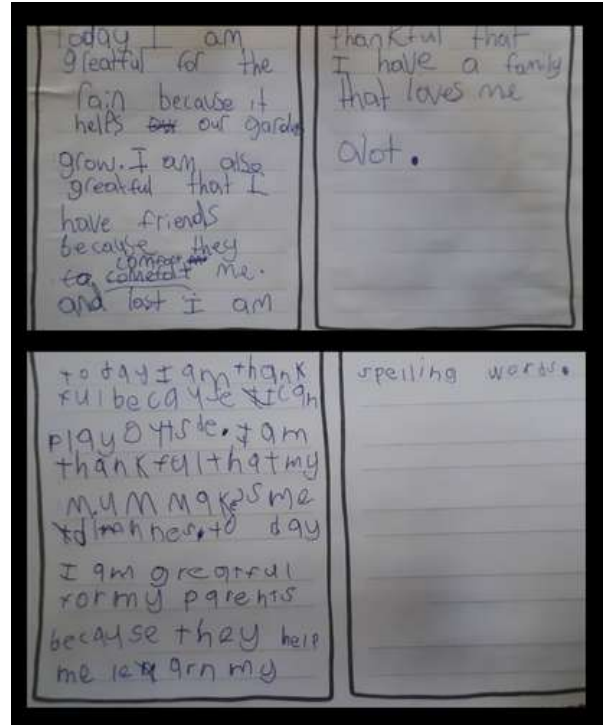 Today I am
greatful for the
rain because it
helps our garden
grow. I am also
greatful that I
have friends
because they
me.
and last I am
thankful that
I have a family
that loves me
alot.
today I am thank
ful because I can
play outside. I am
thankful that my
mum makes me
to day
I am greatful
for my parents
because they help
me learn my
spelling words.